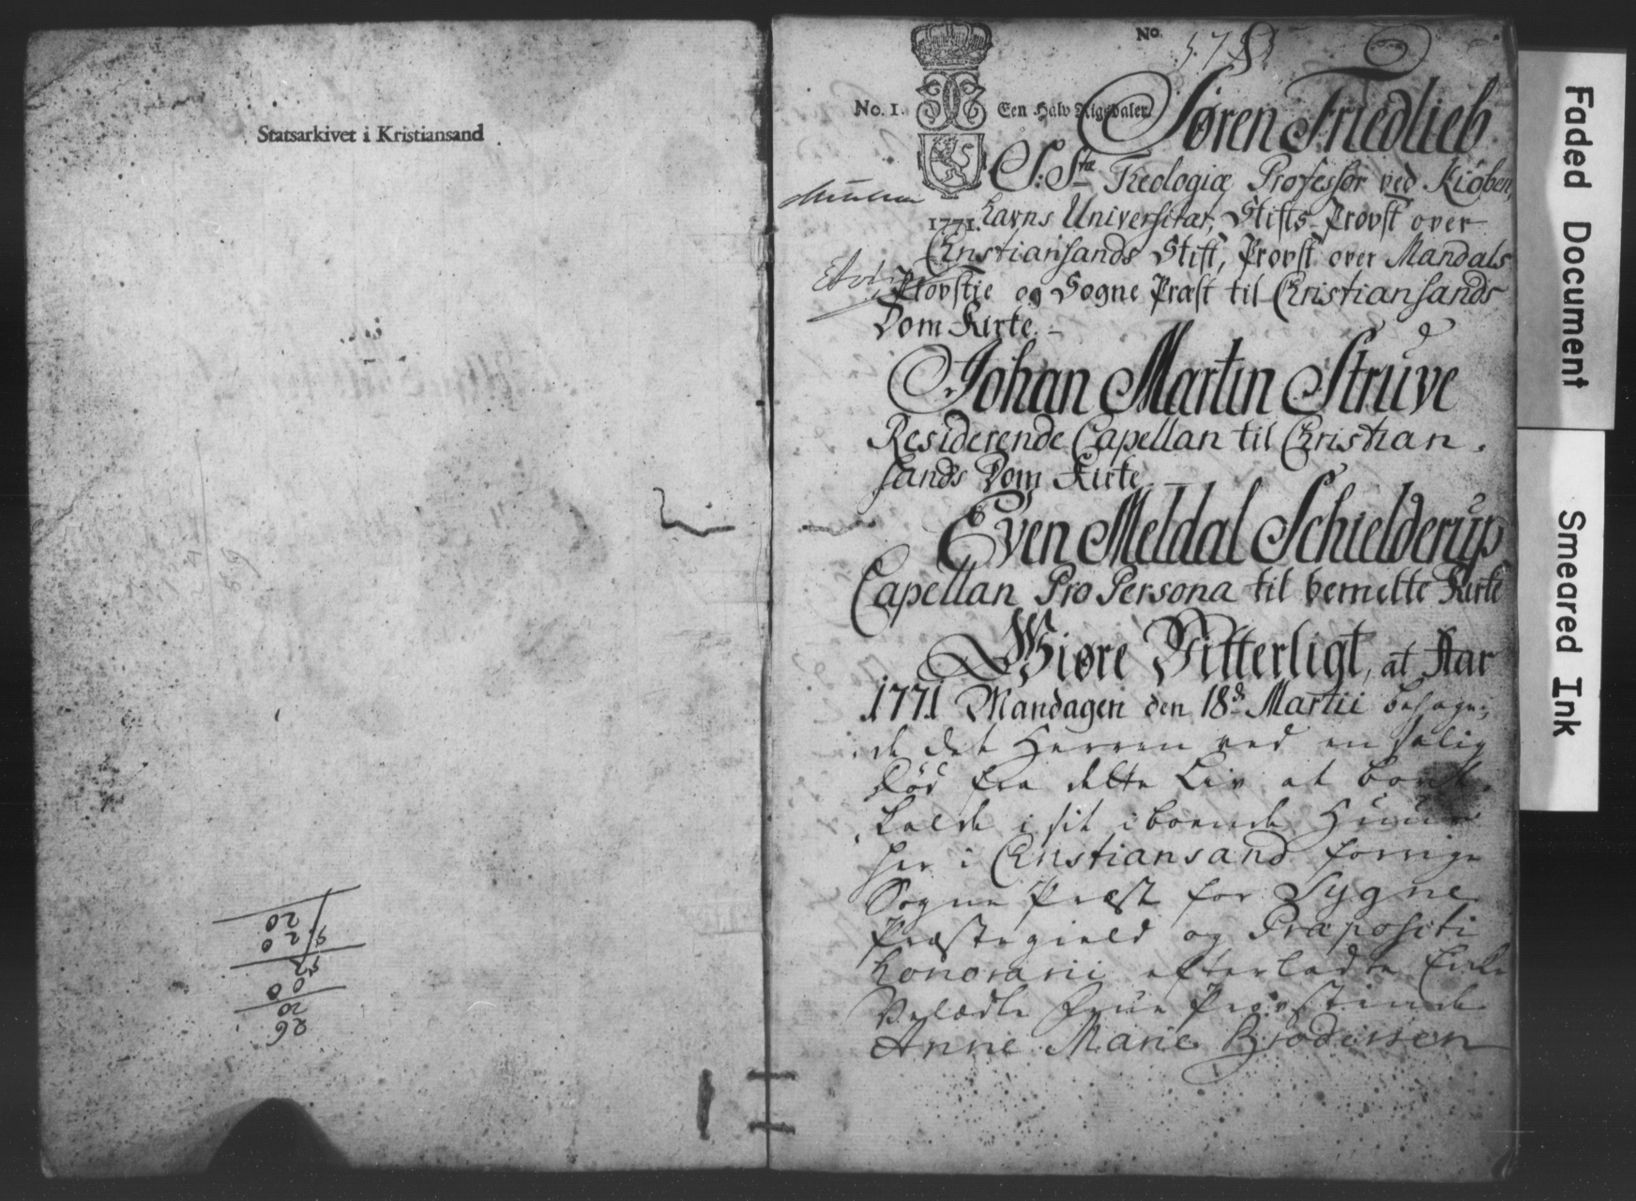 Statsarkivet i Kristiansand
26
20
00
20
20
No.
No. 1.
Een Halv Rigsdaler
1771.
Søren Friedlieb
S: Stæ Theologiæ Professor ved Kiøben,
havns Universitæt, Stifts-Provst over
Christiansands Stift, Provst over Mandals
Provstie og Sogne Præst til Christiansands
Dom Kirke.
Johan Martin Struve
Residerende Capellan til Christian,
sands Dom Kirke
Even Meldal Schielderup
Capellan Pro Persona til bemelte Kirke
Giøre Vitterligt, at Aar
1771 Mandagen den 18de Martii behage,
de det Herren ved en salig
Død fra dette Liv at bort,
kalde i sit iboende Huus
her i Christiansand forrige
Sogne Præst for Sygne
Præstegield og Præpositi
honorarii efterladte Enke
Velædle Frue Provstinde
Anne Marie Brodersen
Faded Document
Smeared Ink